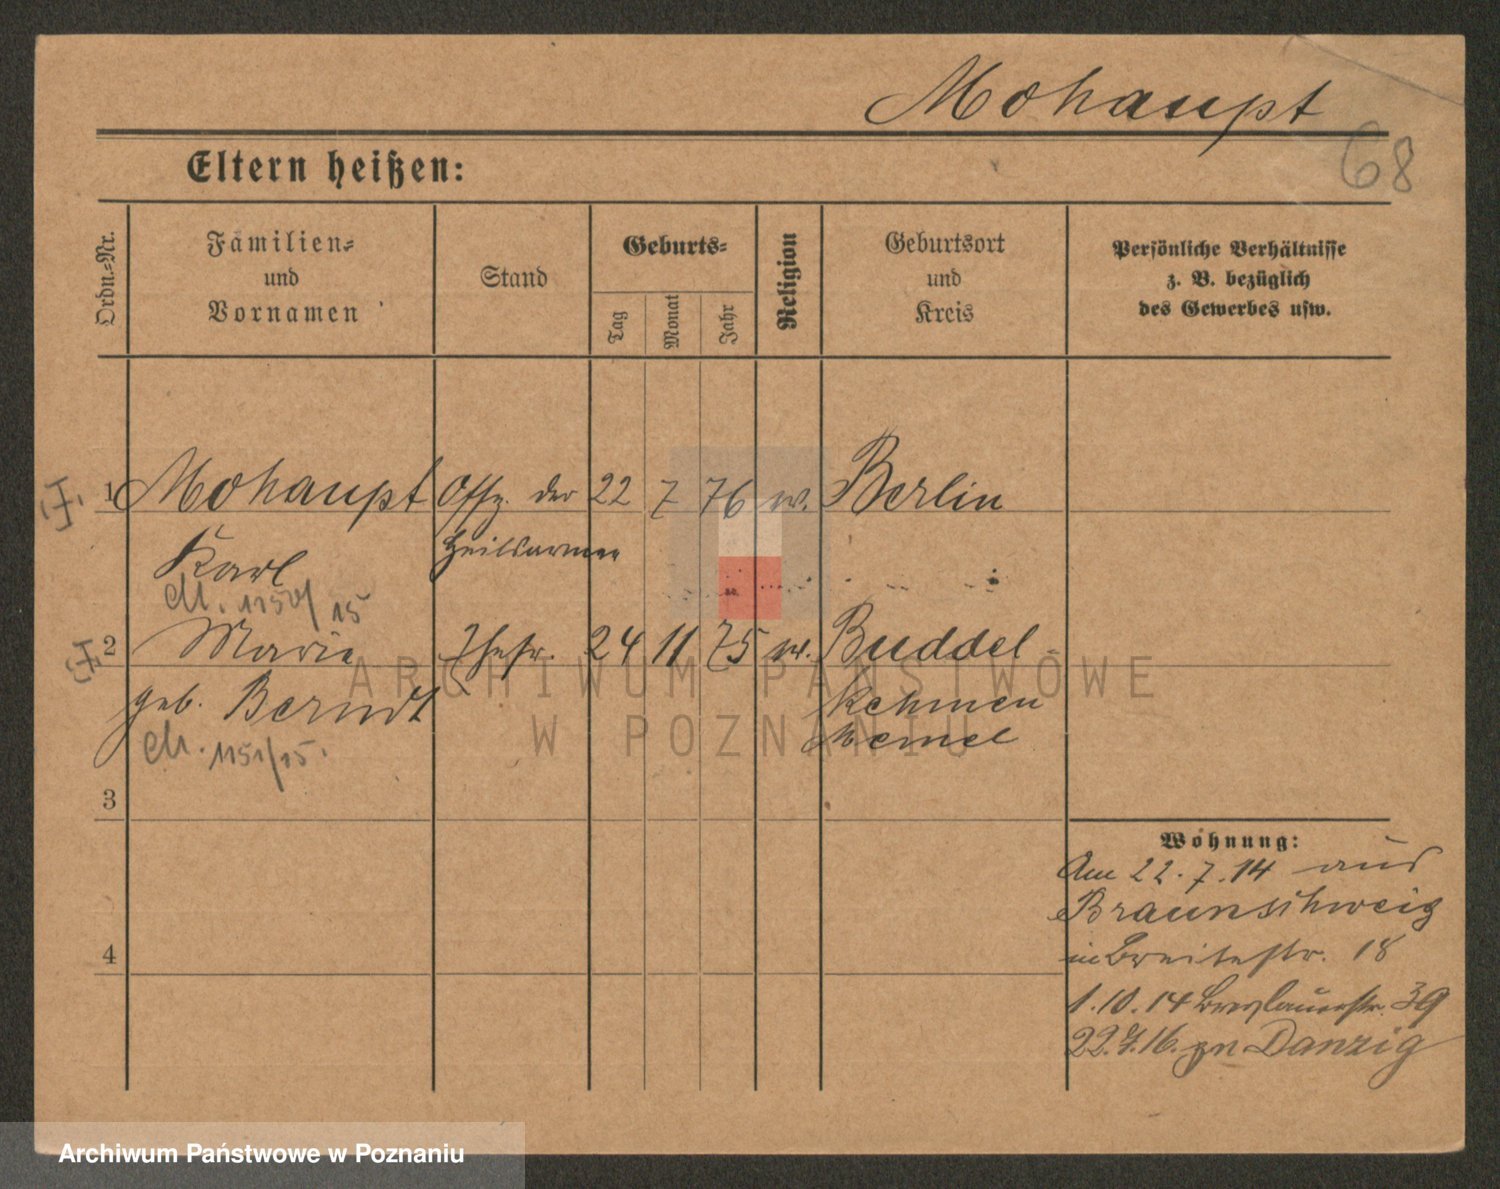 Mohaupt
68
Eltern heißen:
Ordn.=Nr.
Familien=
und
Vornamen
Stand
Geburts=
Tag
Monat
Jahr
Religion
Geburtsort
und
Kreis
Persönliche Verhältnisse
z. B. bezüglich
des Gewerbes usw.
1 Mohaupt Offz. der 22 7 76 Berlin
Karl Heilsarmee
15
2 Marie Ehefr. 24 11 75 Buddel
geb. Berndt Kehmen
Memel
1151/15.
3
4
Wohnung:
Am 22.7.14 aus
Braunschweig
in Breitestr. 18
1.10.14 Breslauerstr. 39
22.7.16. zn Danzig
ARCHIWUM PAŃSTWOWE
W POZNANIU
Archiwum Państwowe w Poznaniu